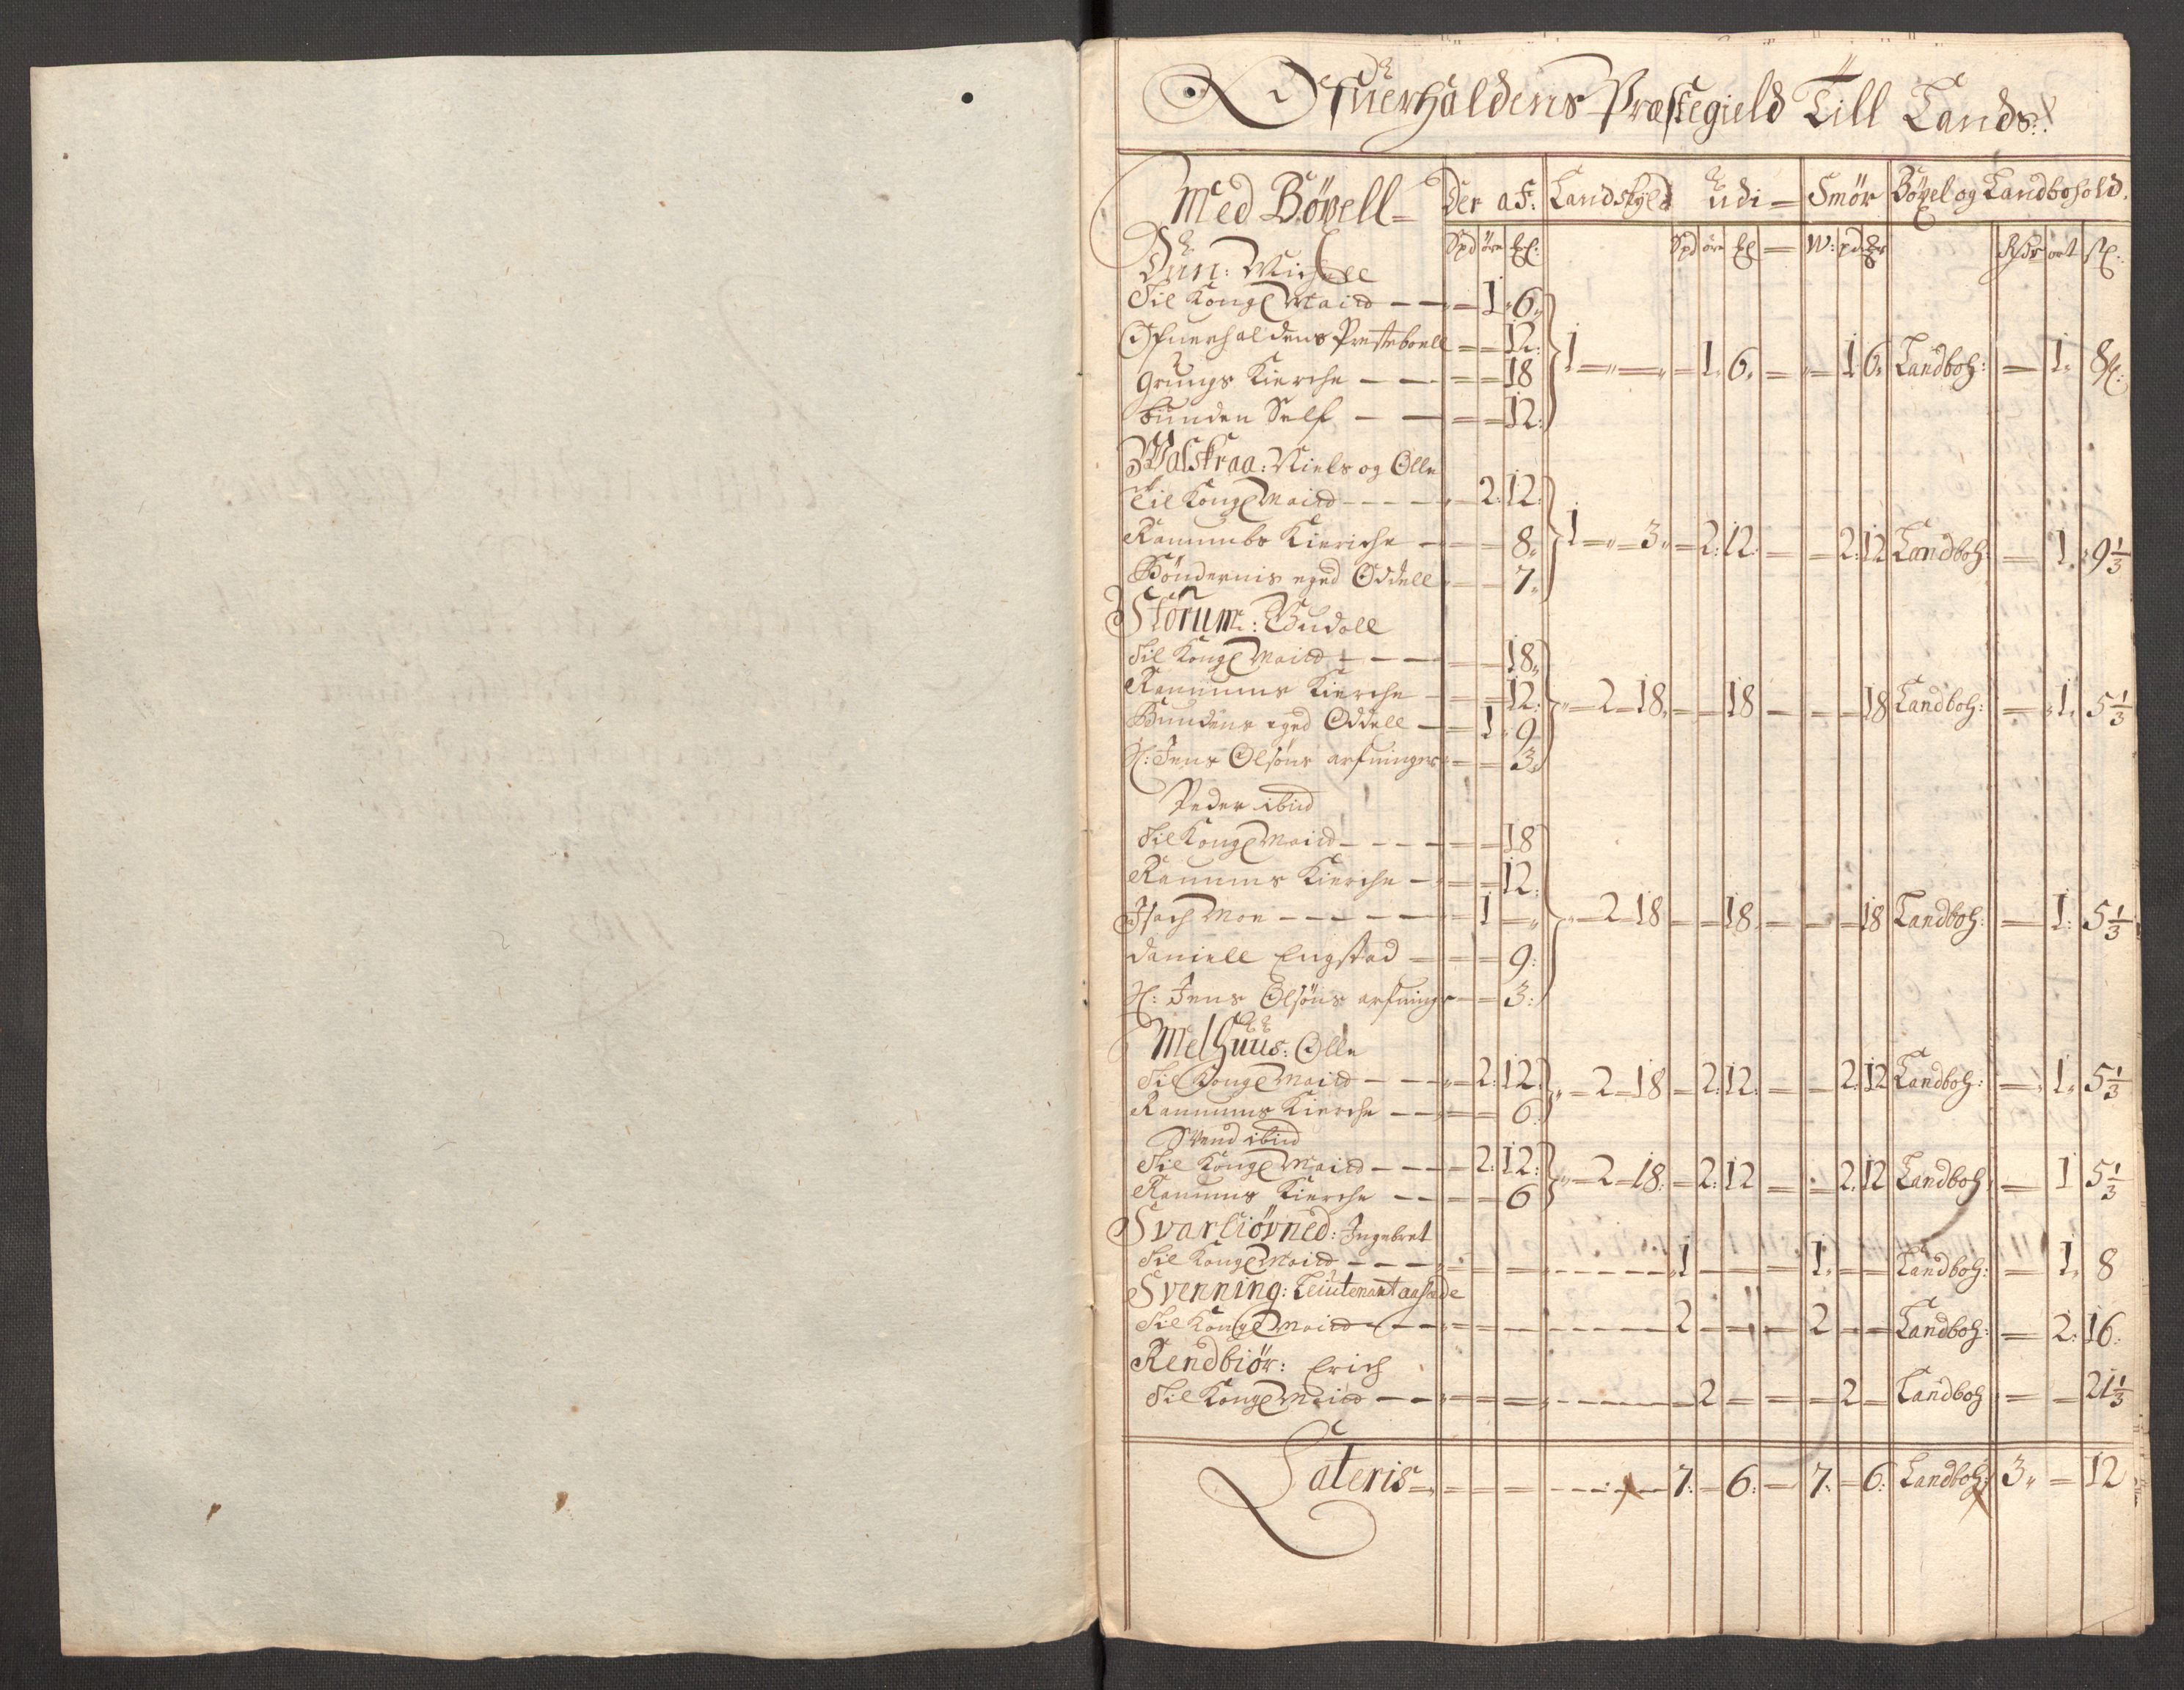 Ofuerhaldens Præstegield Till Lands:
Med Böxell = Der af: Landskyld udi = Smör Böxel og Landbohold.
Spd öre ℔: Spd öre ℔ = W: pd: ℔r Rdr ort s:
Duun: Michell
Til Kongl Maid — — 1 6
Ofuerhaldens Prestebolle == 12: } 1 = = 1. 6. = 1 6. Landboh: = 1. 8s:
Grungs Kierche — — = 18
bunden Self — — = 12:
Walskraa: Niels og Olle
Til Kongl Maid - - - - 2: 12:
Ranumbs Kieriche — = 8. } 1 = 3. = 2: 12: — = 2: 12 Landboh: = 1. 9 1/3
Böndernis eged Oddell — 7.
Störum: Gudoll
Til Kongl Maid — - - 18.
Ranumms Kierche — = 12: } = 2 = 18. = 18 — = 18 Landboh: = 1. 5 1/3
Bundens eged Oddell — 1. 9
H: Jens Olsöns arfuinger = 3.
Peder ibid
Til Kongl Maid - - - = 18
Ranums Kierche — = 12:
Isach Moe - - - - - 1 = } = 2 = 18 = 18. — = 18 Landboh: = 1: 5 1/3
Daniell Engstad — = 9:
H: Jens Olsöns arfuinger = 3:
Melhuus: Olle
Til Kongl Maid — - = 2: 12: } = 2 = 18 = 2: 12: — = 2: 12 Landboh: = 1. 5 1/3
Ranumms Kierche — - = 6:
Svend ibid
Til Kongl Maid - - - = 2: 12: } = 2 = 18: = 2: 12 — = 2: 12 Landboh: = 1 5 1/3
Ranums Kierche — - = 6
Svarliövned: Ingebret
Til Kongl Maid - - - = 1 = 1. = Landboh: = 1. 8
Svenning: Leiutenant aasæde
Til Kongl Maid - - = 2 = 2 = Landboh: = 2: 16:
Rendbiör: Erich
Til Kongl Maid - - = 2 = 2 = Landboh = 21 1/3
Lateris = 7: = 6: = 7: = 6: Landboh: 3. = 12